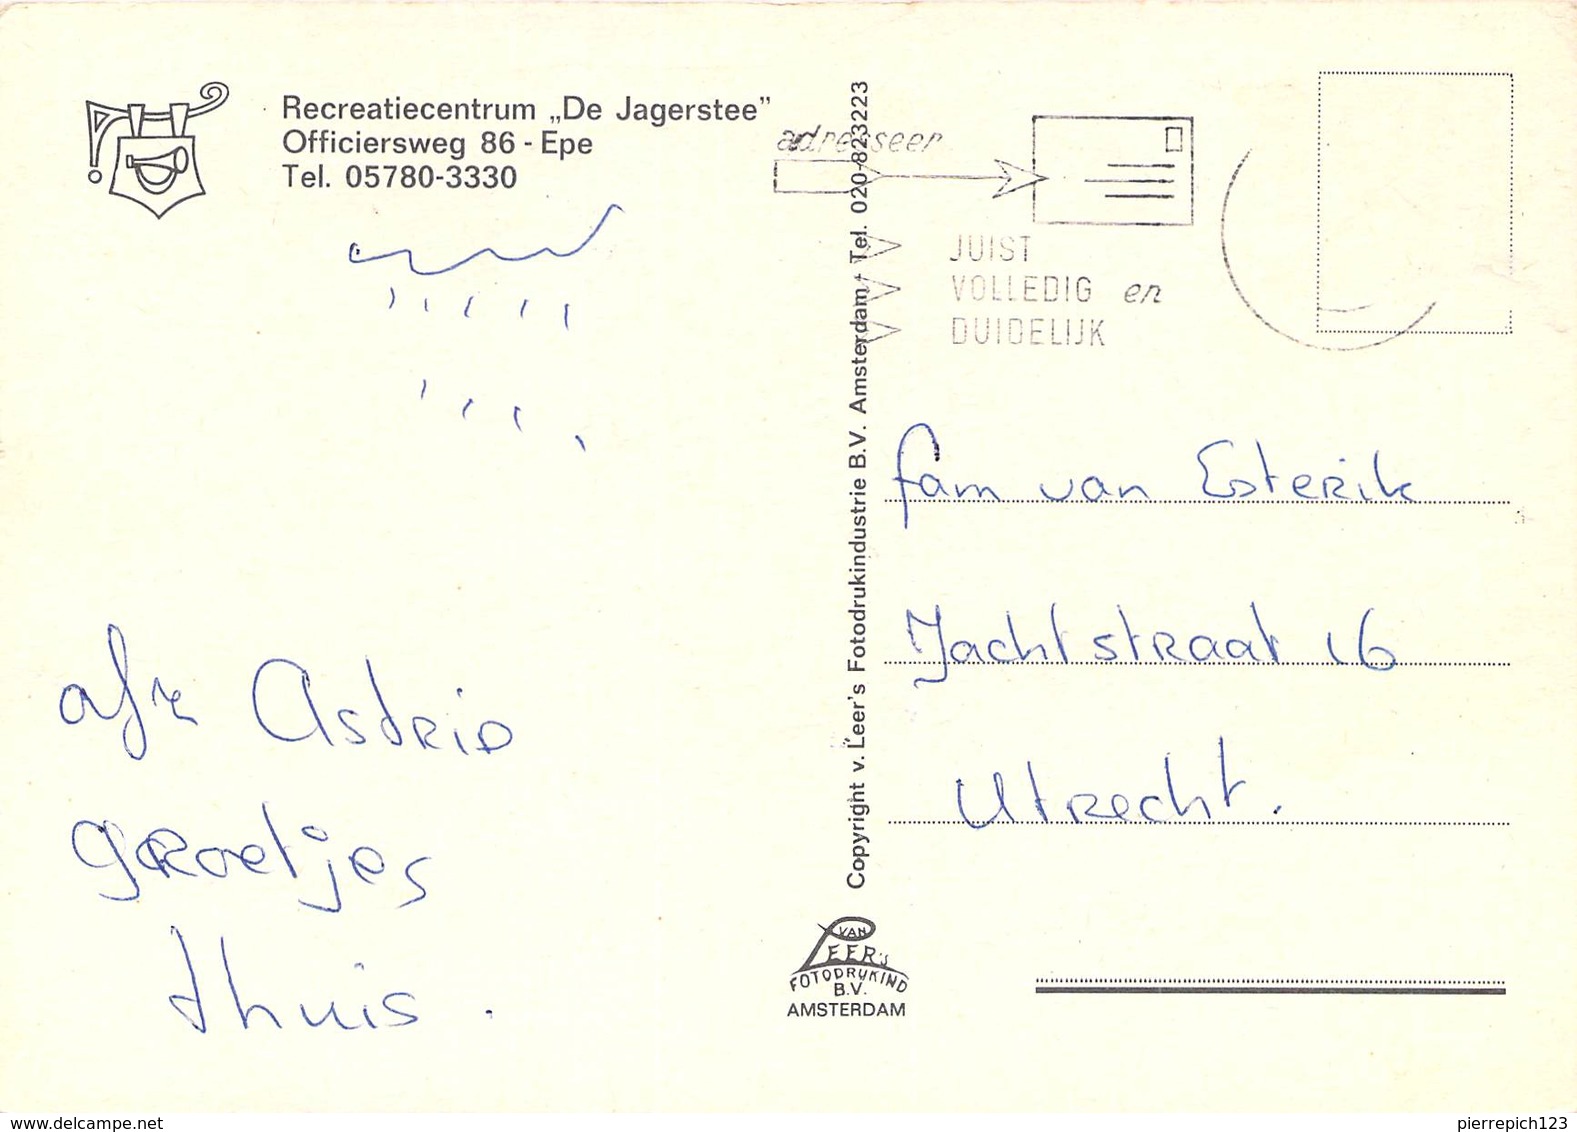 Recreatiecentrum „De Jagerstee”
Officiersweg 86 - Epe
Tel. 05780-3330
adresseer
JUIST
VOLLEDIG en
DUIDELIJK
Copyright v. Leer's Fotodrukindustrie B.V. Amsterdam - Tel. 020-823223
fam van Esterik
Jachtstraat 16
Utrecht.
afz Astrid
groetjes
thuis.
VAN
LEER'S
FOTODRUKIND
B.V.
AMSTERDAM
www.delcampe.net
pierrepich123